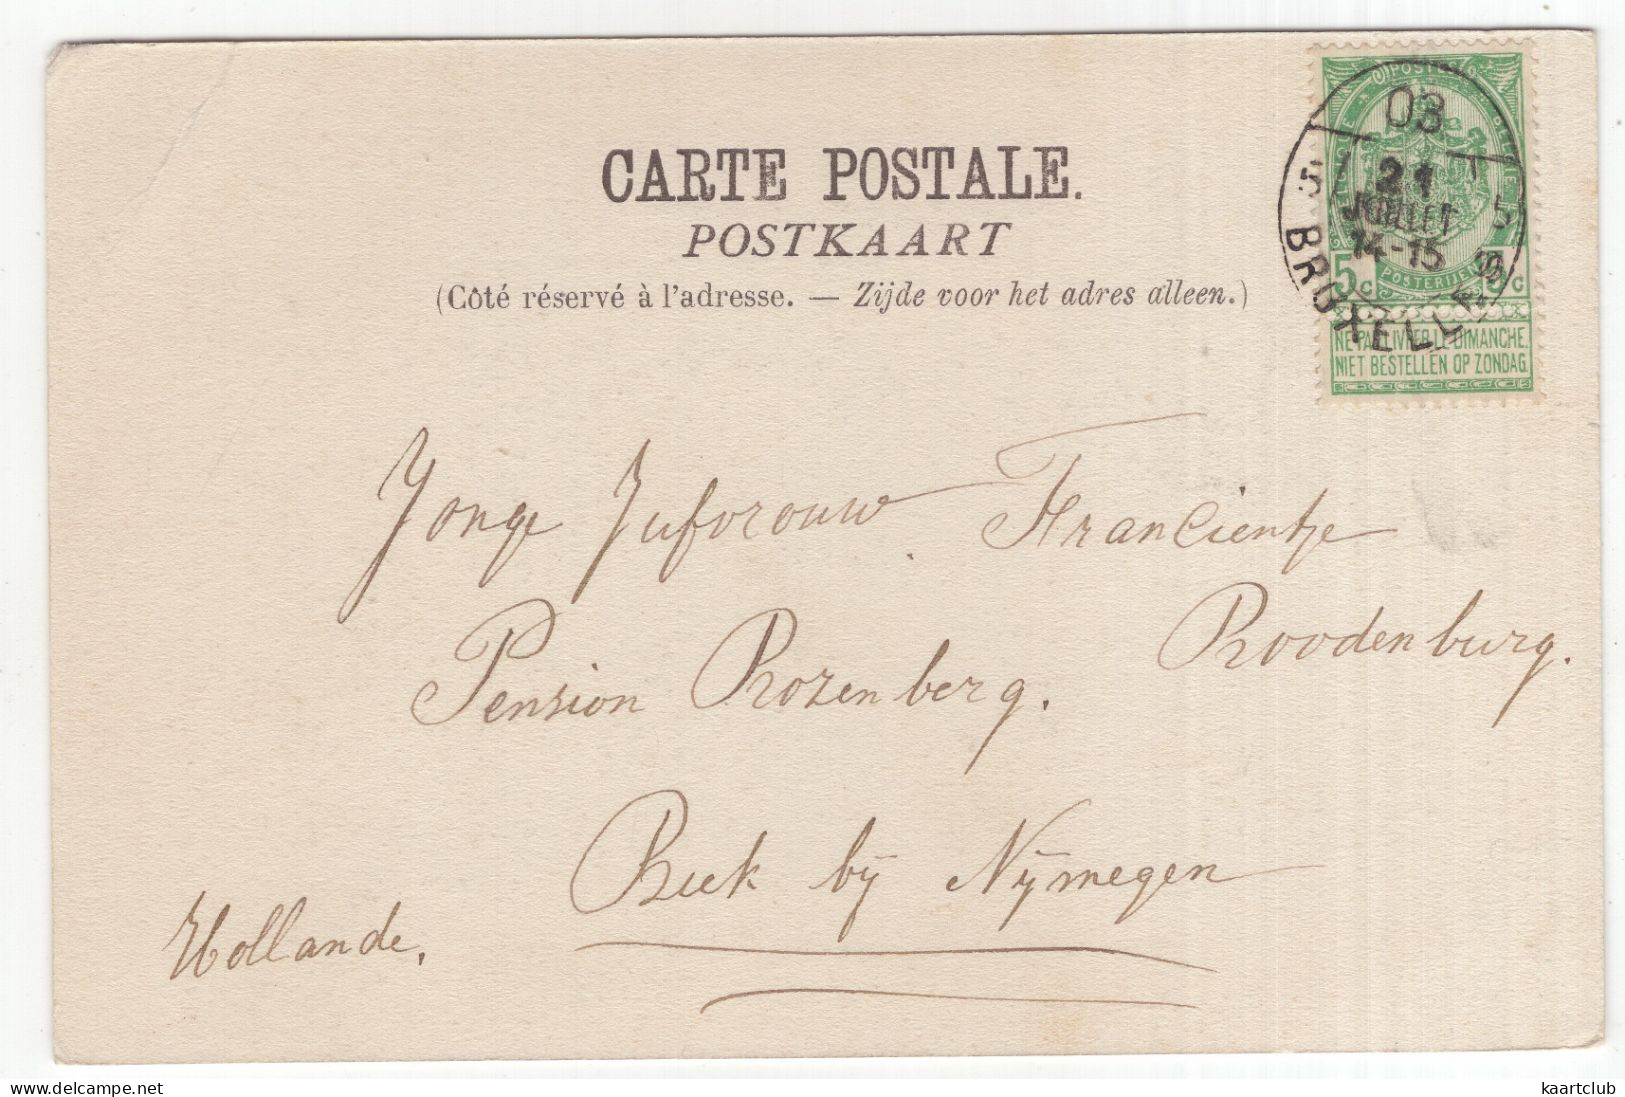 CARTE POSTALE.
POSTKAART
(Côté réservé à l'adresse. — Zijde voor het adres alleen.)
03
21
JUILLET
14-15
5 5
BRUXELLES
5c 5c
POSTERIJEN
NE PAS LIVRER LE DIMANCHE.
NIET BESTELLEN OP ZONDAG.
Jonge Jufvrouw Francientje
Roodenburg.
Pension Rozenberg.
Beek bÿ Nÿmegen
Hollande.
delcampe.net
kaartclub